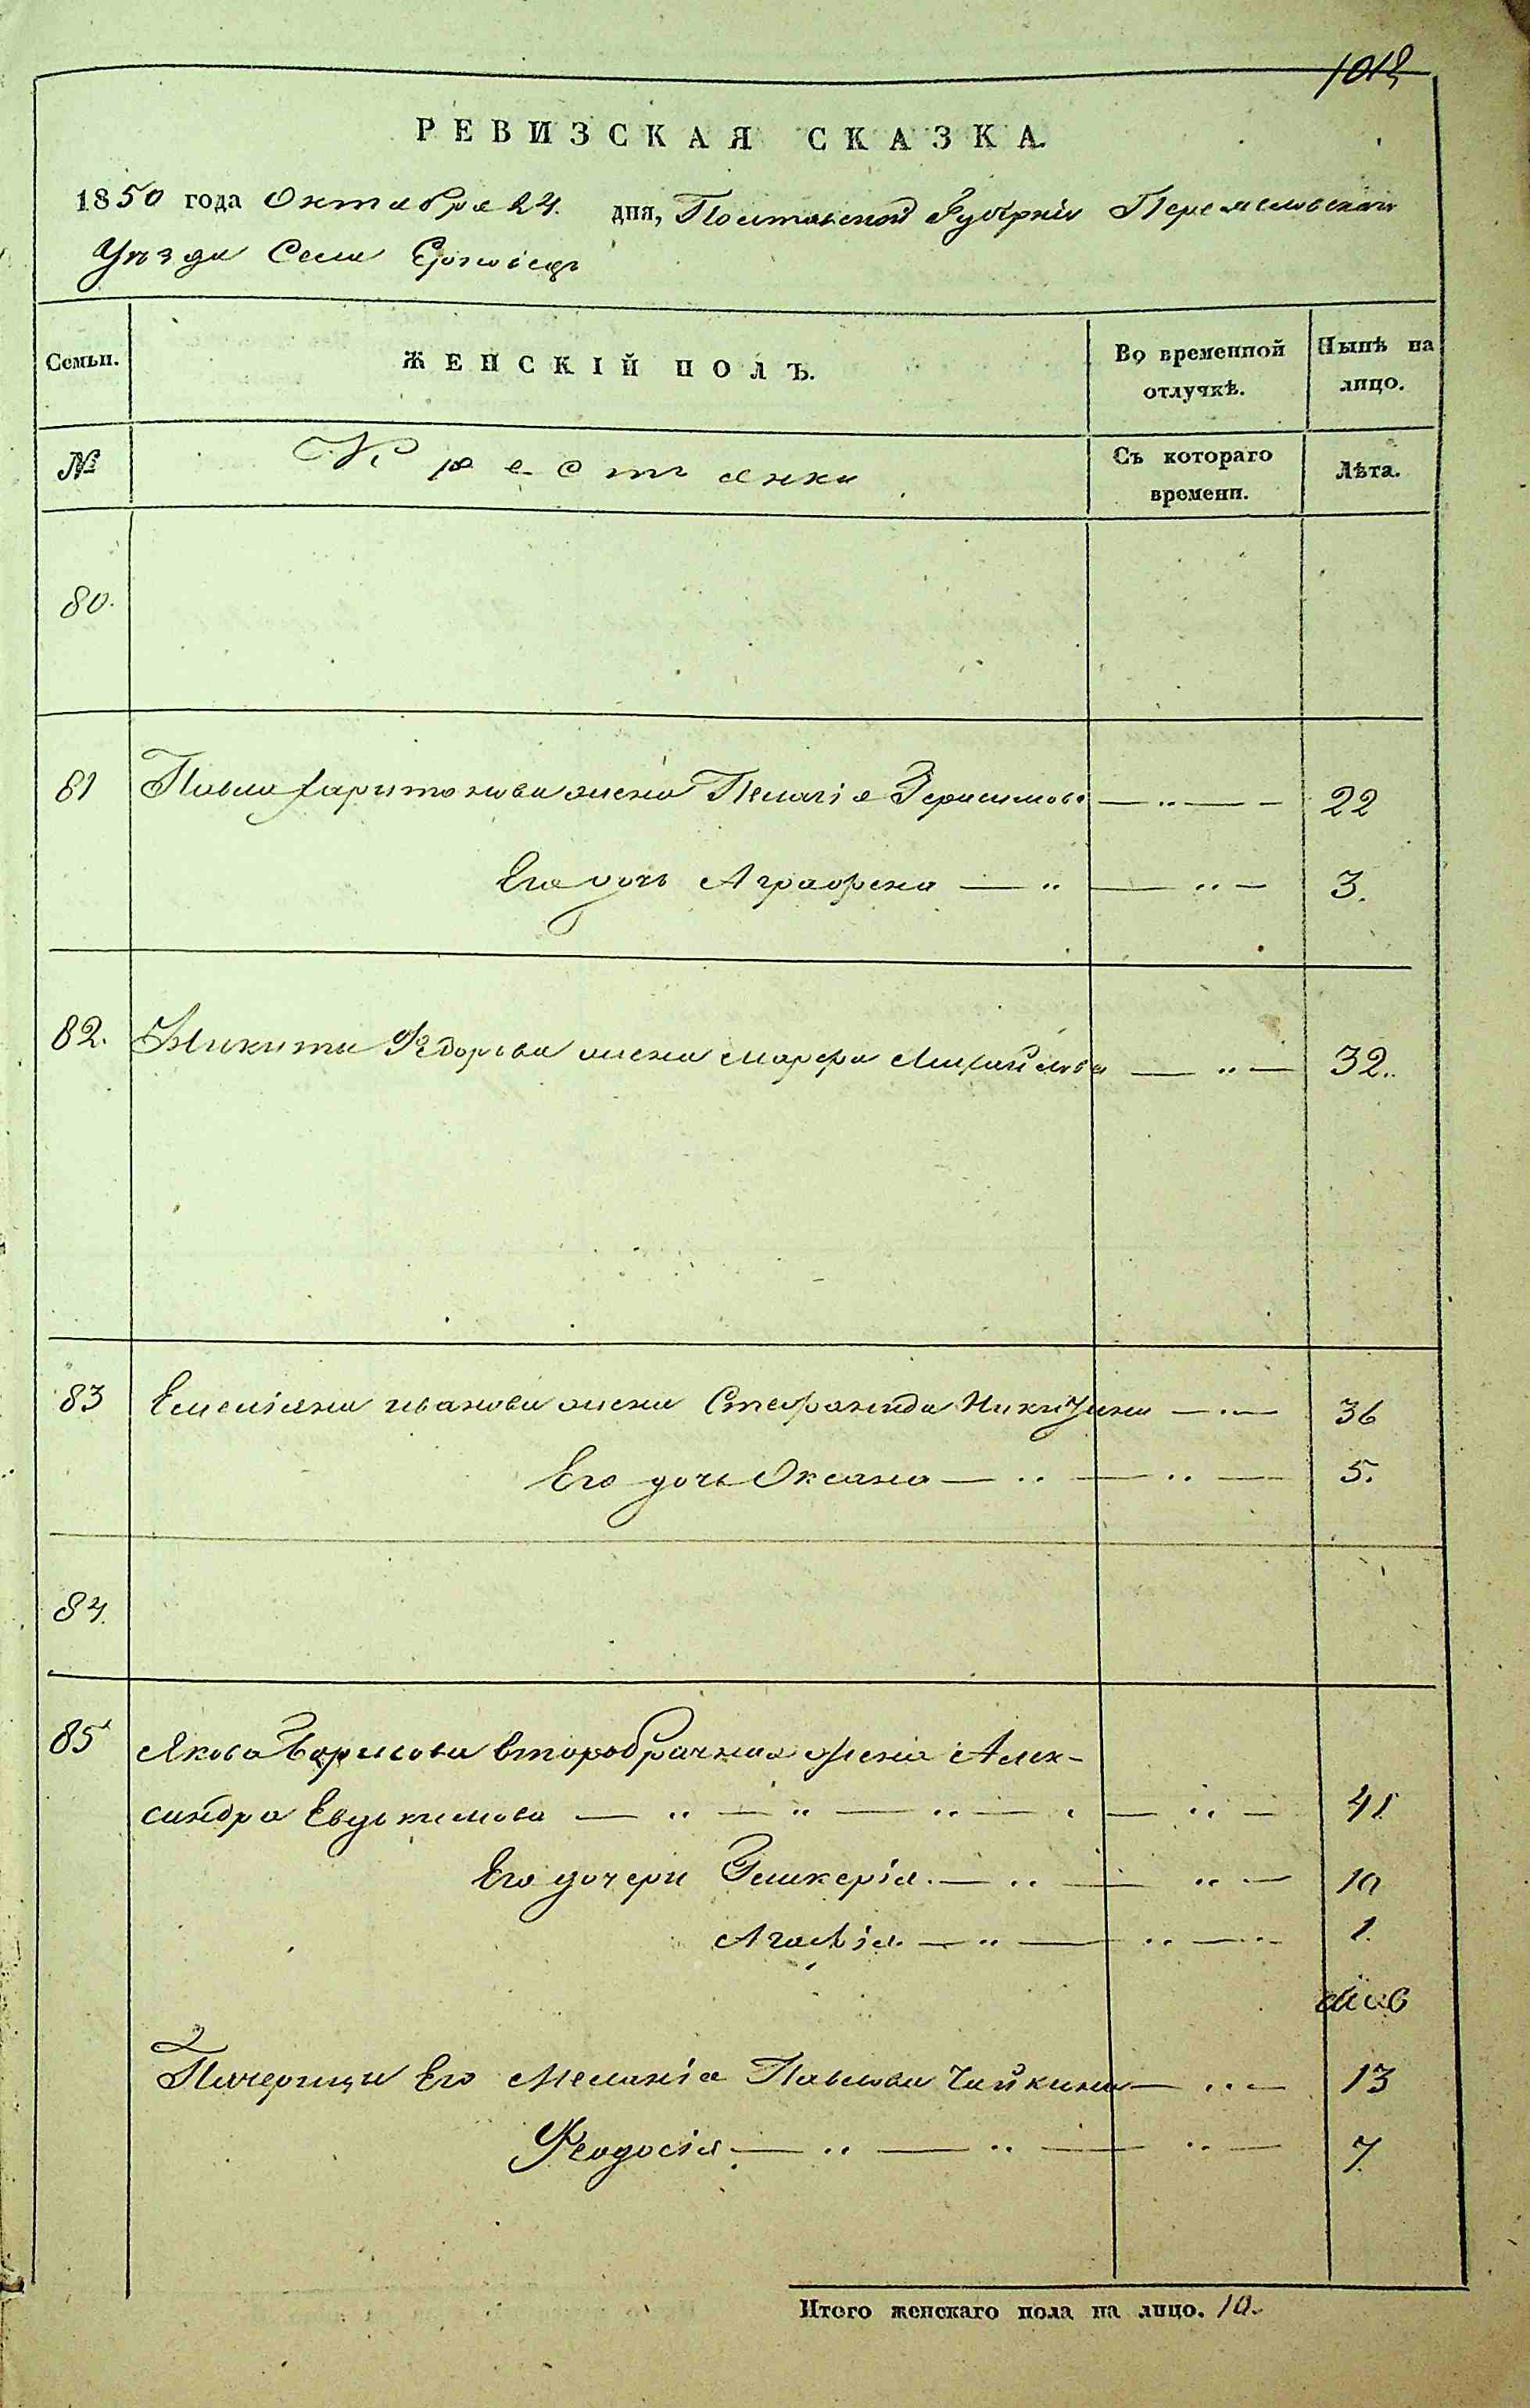 1012
РЕВИЗСКАЯ СКАЗКА.
1850 года Октября 24. дня, Полтавской Губерніи Переяславскаго
Уѣзда Села
Семьи. ЖЕНСКІЙ ПОЛЪ. Во временной отлучкѣ. Нынѣ на лицо.
№ Крестьянки Съ котораго времени. Лѣта.
80.
81 Павла Харитонова жена Пелагія Герасимова — „ — 22
Его дочь Аграфена — „ — „ — 3.
82. Никиты Федорова жена Марфа Михайлова — „ — 32.
83 Емеліяна Иванова жена Стефанида Никитина — „ — 36
Его дочь Оксана — „ — „ — 5.
84.
85 Якова Борисова второбрачная жена Алек-
сандра Евдокимова — „ — „ — „ — „ — 41
Его дочери Гликерія. — „ — „ — 10
Агафія. — „ — „ — 1.
Падчерицы Его Меланія Павлова Чайкина — „ — 13
Феодосія — „ — „ — „ — 7.
Итого женскаго пола на лицо. 10.